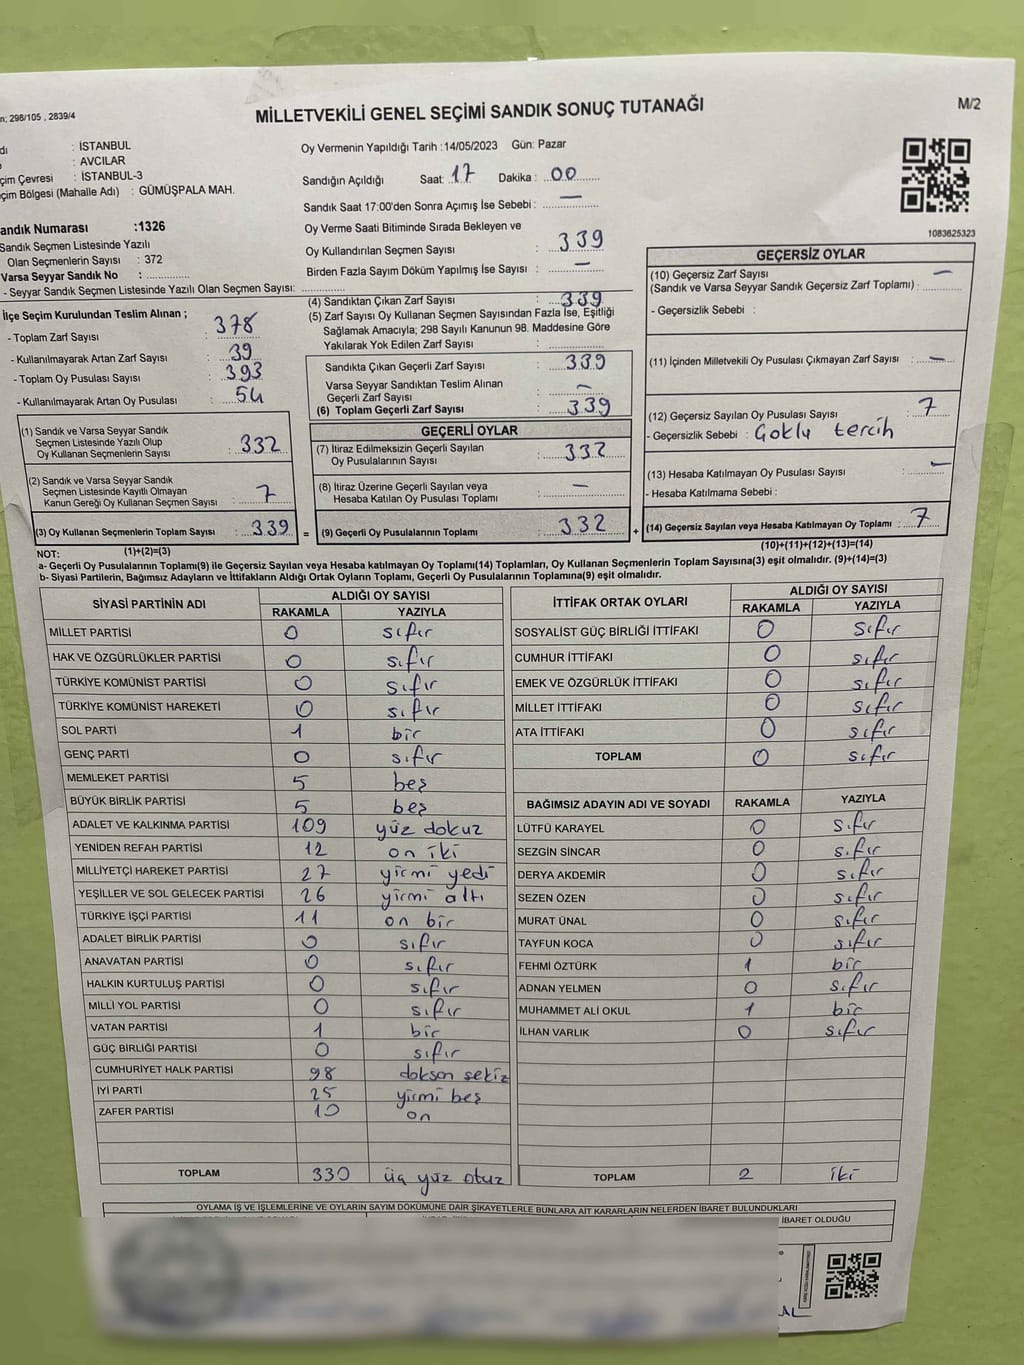 n; 298/105 , 2839/4
MİLLETVEKİLİ GENEL SEÇİMİ SANDIK SONUÇ TUTANAĞI
M/2
dı : İSTANBUL
: AVCILAR
çim Çevresi : İSTANBUL-3
çim Bölgesi (Mahalle Adı) : GÜMÜŞPALA MAH.
andık Numarası :1326
Sandık Seçmen Listesinde Yazılı
Olan Seçmenlerin Sayısı : 372
Varsa Seyyar Sandık No :
- Seyyar Sandık Seçmen Listesinde Yazılı Olan Seçmen Sayısı:
Oy Vermenin Yapıldığı Tarih :14/05/2023 Gün: Pazar
Sandığın Açıldığı Saat: 17 Dakika : 00
Sandık Saat 17:00'den Sonra Açımış İse Sebebi : —
Oy Verme Saati Bitiminde Sırada Bekleyen ve
Oy Kullandırılan Seçmen Sayısı : 339
Birden Fazla Sayım Döküm Yapılmış İse Sayısı : —
1083625323
İlçe Seçim Kurulundan Teslim Alınan ;
- Toplam Zarf Sayısı : 378
- Kullanılmayarak Artan Zarf Sayısı : 39
- Toplam Oy Pusulası Sayısı : 393
- Kullanılmayarak Artan Oy Pusulası : 54
(1) Sandık ve Varsa Seyyar Sandık
Seçmen Listesinde Yazılı Olup
Oy Kullanan Seçmenlerin Sayısı : 332
(2) Sandık ve Varsa Seyyar Sandık
Seçmen Listesinde Kayıtlı Olmayan
Kanun Gereği Oy Kullanan Seçmen Sayısı : 7
(3) Oy Kullanan Seçmenlerin Toplam Sayısı : 339 =
(4) Sandıktan Çıkan Zarf Sayısı : 339
(5) Zarf Sayısı Oy Kullanan Seçmen Sayısından Fazla İse, Eşitliği
Sağlamak Amacıyla; 298 Sayılı Kanunun 98. Maddesine Göre
Yakılarak Yok Edilen Zarf Sayısı :
Sandıkta Çıkan Geçerli Zarf Sayısı : 339
Varsa Seyyar Sandıktan Teslim Alınan
Geçerli Zarf Sayısı : —
(6) Toplam Geçerli Zarf Sayısı : 339
GEÇERLİ OYLAR
(7) İtiraz Edilmeksizin Geçerli Sayılan
Oy Pusulalarının Sayısı : 332
(8) İtiraz Üzerine Geçerli Sayılan veya
Hesaba Katılan Oy Pusulası Toplamı : —
(9) Geçerli Oy Pusulalarının Toplamı : 332 +
GEÇERSİZ OYLAR
(10) Geçersiz Zarf Sayısı —
(Sandık ve Varsa Seyyar Sandık Geçersiz Zarf Toplamı) :
- Geçersizlik Sebebi :
(11) İçinden Milletvekili Oy Pusulası Çıkmayan Zarf Sayısı : —
(12) Geçersiz Sayılan Oy Pusulası Sayısı : 7
- Geçersizlik Sebebi : Çoklu tercih
(13) Hesaba Katılmayan Oy Pusulası Sayısı : —
- Hesaba Katılmama Sebebi :
(14) Geçersiz Sayılan veya Hesaba Katılmayan Oy Toplamı : 7
NOT: (1)+(2)=(3)
(10)+(11)+(12)+(13)=(14)
a- Geçerli Oy Pusulalarının Toplamı(9) ile Geçersiz Sayılan veya Hesaba katılmayan Oy Toplamı(14) Toplamları, Oy Kullanan Seçmenlerin Toplam Sayısına(3) eşit olmalıdır. (9)+(14)=(3)
b- Siyasi Partilerin, Bağımsız Adayların ve İttifakların Aldığı Ortak Oyların Toplamı, Geçerli Oy Pusulalarının Toplamına(9) eşit olmalıdır.
SİYASİ PARTİNİN ADI ALDIĞI OY SAYISI
RAKAMLA YAZIYLA
MİLLET PARTİSİ 0 sıfır
HAK VE ÖZGÜRLÜKLER PARTİSİ 0 sıfır
TÜRKİYE KOMÜNİST PARTİSİ 0 sıfır
TÜRKİYE KOMÜNİST HAREKETİ 0 sıfır
SOL PARTİ 1 bir
GENÇ PARTİ 0 sıfır
MEMLEKET PARTİSİ 5 beş
BÜYÜK BİRLİK PARTİSİ 5 beş
ADALET VE KALKINMA PARTİSİ 109 yüz dokuz
YENİDEN REFAH PARTİSİ 12 on iki
MİLLİYETÇİ HAREKET PARTİSİ 27 yirmi yedi
YEŞİLLER VE SOL GELECEK PARTİSİ 26 yirmi altı
TÜRKİYE İŞÇİ PARTİSİ 11 on bir
ADALET BİRLİK PARTİSİ 0 sıfır
ANAVATAN PARTİSİ 0 sıfır
HALKIN KURTULUŞ PARTİSİ 0 sıfır
MİLLİ YOL PARTİSİ 0 sıfır
VATAN PARTİSİ 1 bir
GÜÇ BİRLİĞİ PARTİSİ 0 sıfır
CUMHURİYET HALK PARTİSİ 98 doksan sekiz
İYİ PARTİ 25 yirmi beş
ZAFER PARTİSİ 10 on
TOPLAM 330 üç yüz otuz
İTTİFAK ORTAK OYLARI ALDIĞI OY SAYISI
RAKAMLA YAZIYLA
SOSYALİST GÜÇ BİRLİĞİ İTTİFAKI 0 sıfır
CUMHUR İTTİFAKI 0 sıfır
EMEK VE ÖZGÜRLÜK İTTİFAKI 0 sıfır
MİLLET İTTİFAKI 0 sıfır
ATA İTTİFAKI 0 sıfır
TOPLAM 0 sıfır
BAĞIMSIZ ADAYIN ADI VE SOYADI RAKAMLA YAZIYLA
LÜTFÜ KARAYEL 0 sıfır
SEZGİN SİNCAR 0 sıfır
DERYA AKDEMİR 0 sıfır
SEZEN ÖZEN 0 sıfır
MURAT ÜNAL 0 sıfır
TAYFUN KOCA 0 sıfır
FEHMİ ÖZTÜRK 1 bir
ADNAN YELMEN 0 sıfır
MUHAMMET ALİ OKUL 1 bir
İLHAN VARLIK 0 sıfır
TOPLAM 2 iki
OYLAMA İŞ VE İŞLEMLERİNE VE OYLARIN SAYIM DÖKÜMÜNE DAİR ŞİKAYETLERLE BUNLARA AİT KARARLARIN NELERDEN İBARET BULUNDUKLARI
İBARET OLDUĞU